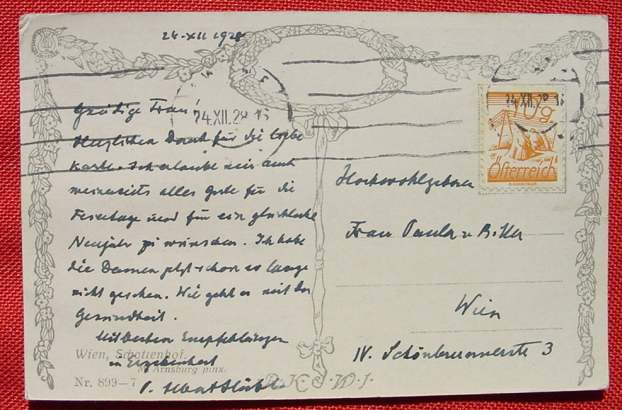 24-XII 1928
Gnädige Frau!
Herzlichen Dank für die liebe
Karte. Ich erlaube mir auch
meinerseits alles Gute für die
Feiertage und für ein glückliches
Neujahr zu wünschen. Ich habe
die Damen jetzt schon so lange
nicht gesehen. Wie geht es mit der
Gesundheit.
Mit besten Empfehlungen
in Ergebenheit
Wien, Schottenhof.
Arnsburg pinx.
Nr. 899-7
24.XII.28
24.XII.28
Österreich
Hochwohlgeboren
Frau Paula v.
Wien
IV. Schönbrunnerstr 3